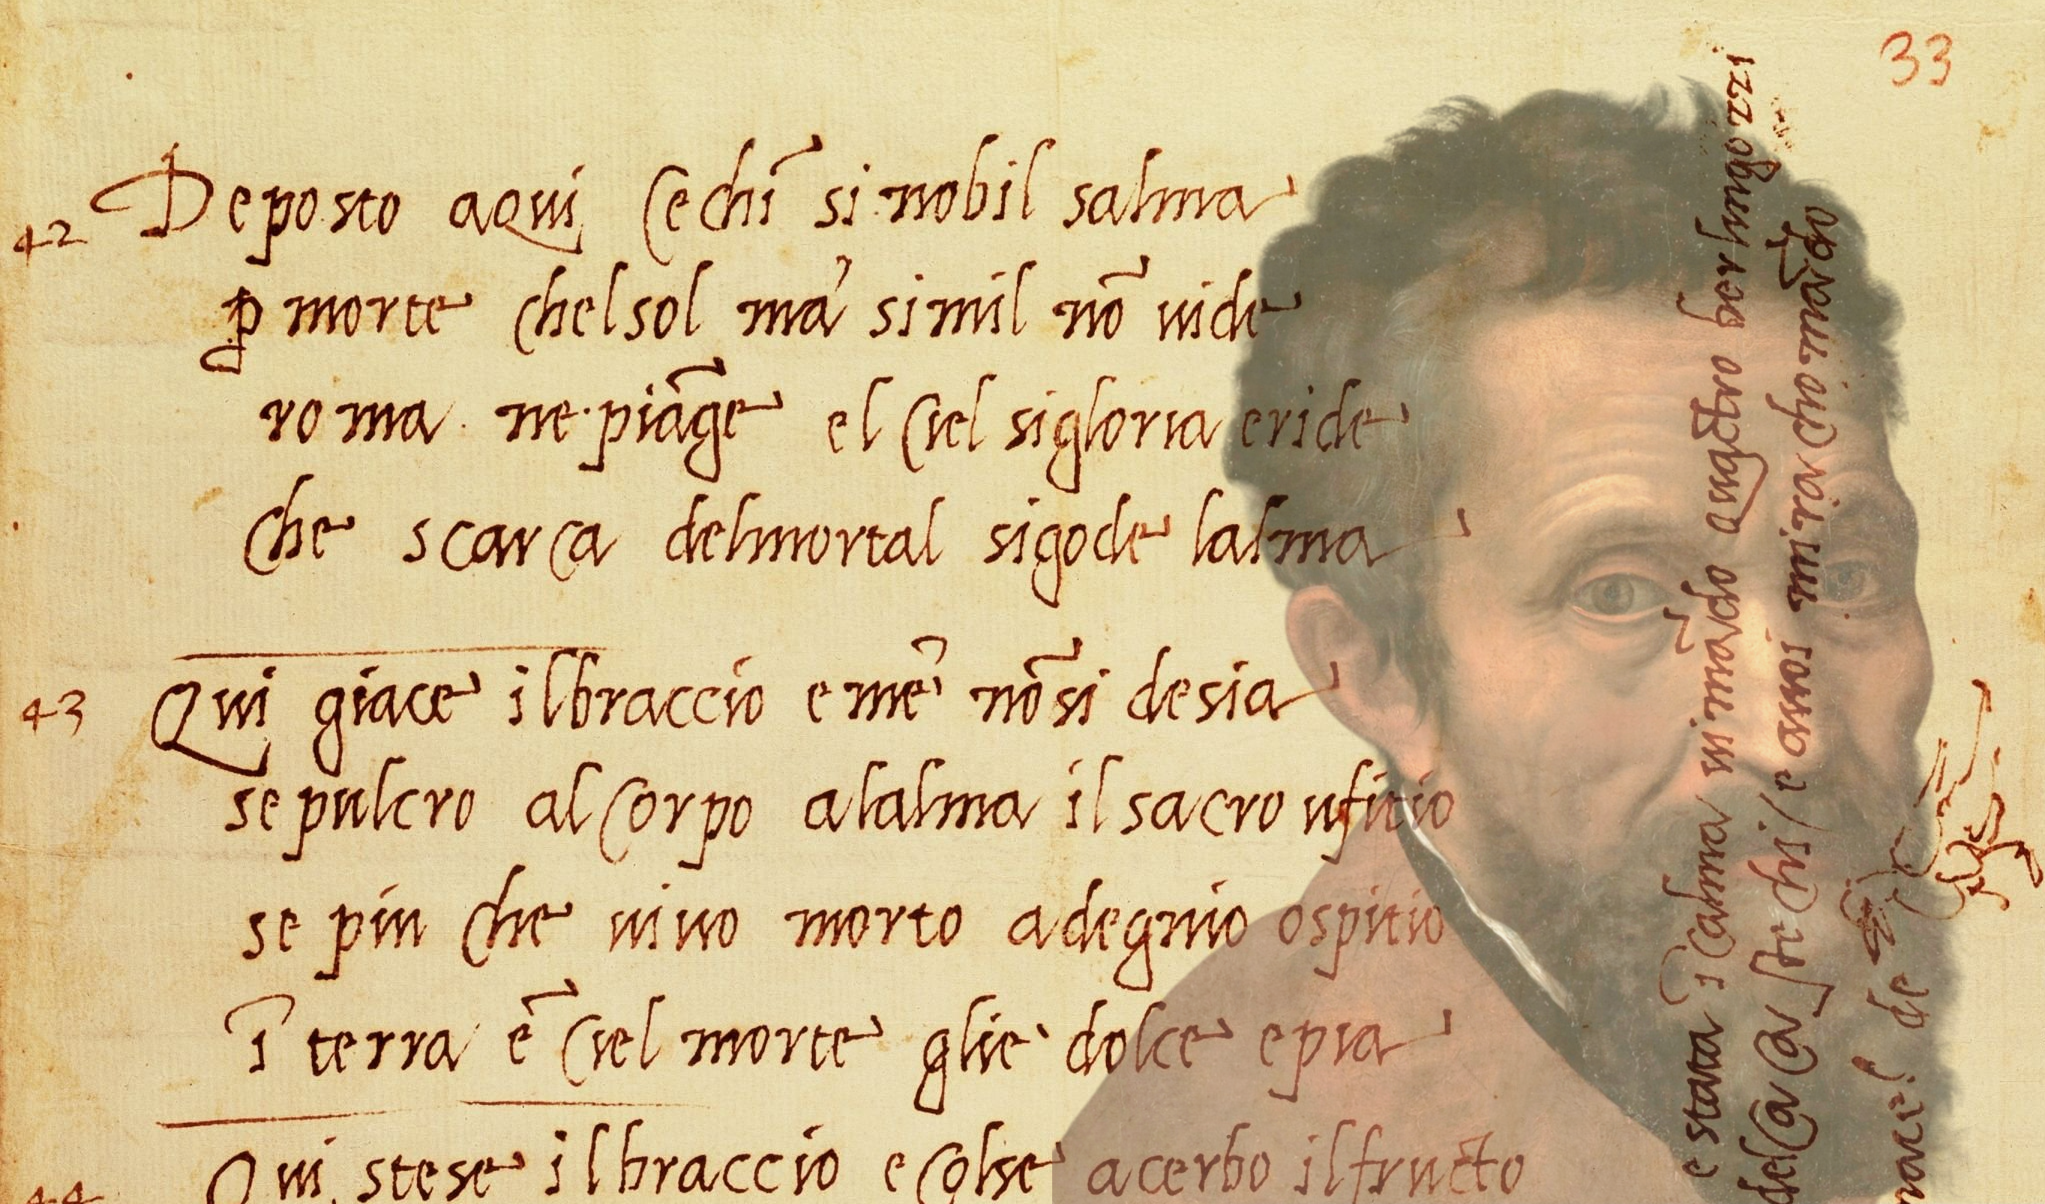 33
42 Deposto a qui Cechĩ si nobil salma
ꝑ morte chel sol ma' simil nõ uide
roma ne piãge el ciel si gloria e ride
che scarca del mortal si gode lalma
43 Qui giace il braccio e me' nõ si desia
sepulcro al corpo a lalma il sacro ufitio
se piu che uiuo morto a degnio ospitio
ĩ terra ẽ ciel morte glie dolce e pia
44 Qui stese il braccio e colse acerbo il fructo
e stata ĩ calma ui mãdo quatro berlingozzi
chio mãgo
de